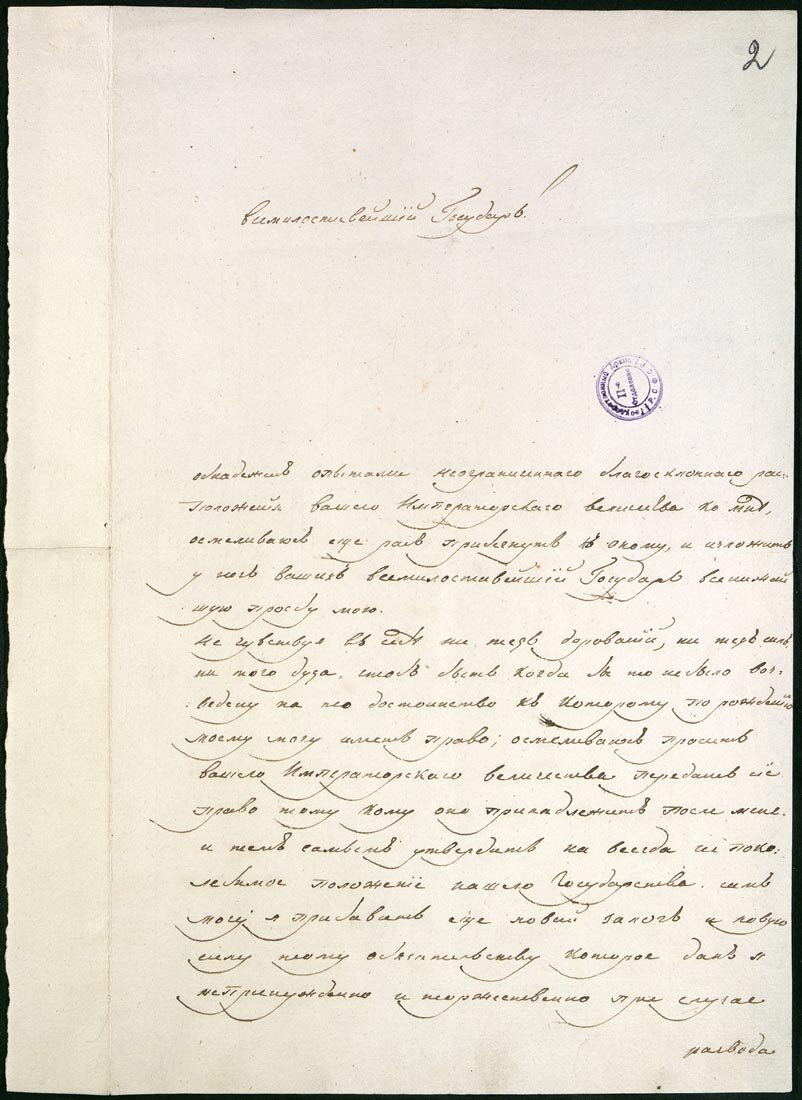 2
Всемилостивейший Государь!
обнадежен опытами неограниченного благосклонного рас-
положения вашего Императорского величества ко мне,
осмеливаюсь еще раз прибегнуть к оному, и изложить
у ног ваших всемилостивейший Государь всенижай
шую прозбу мою.
Не чувствуя в себе ни тех дорований, ни тех сил,
ни того духа, чтоб быть когда бы то небыло воз-
ведену на то достоинство к которому по рождению
моему могу иметь право; осмеливаюсь просить
вашего Императорского величества передать сие
право тому кому оно принадлежит после меня.
и тем самым утвердить на всегда непоко-
лебимое положение нашего Государства. сим
могу я прибавить еще новый залог и новую
силу тому обязательству которое дал я
непринужденно и торжественно при случае
развода